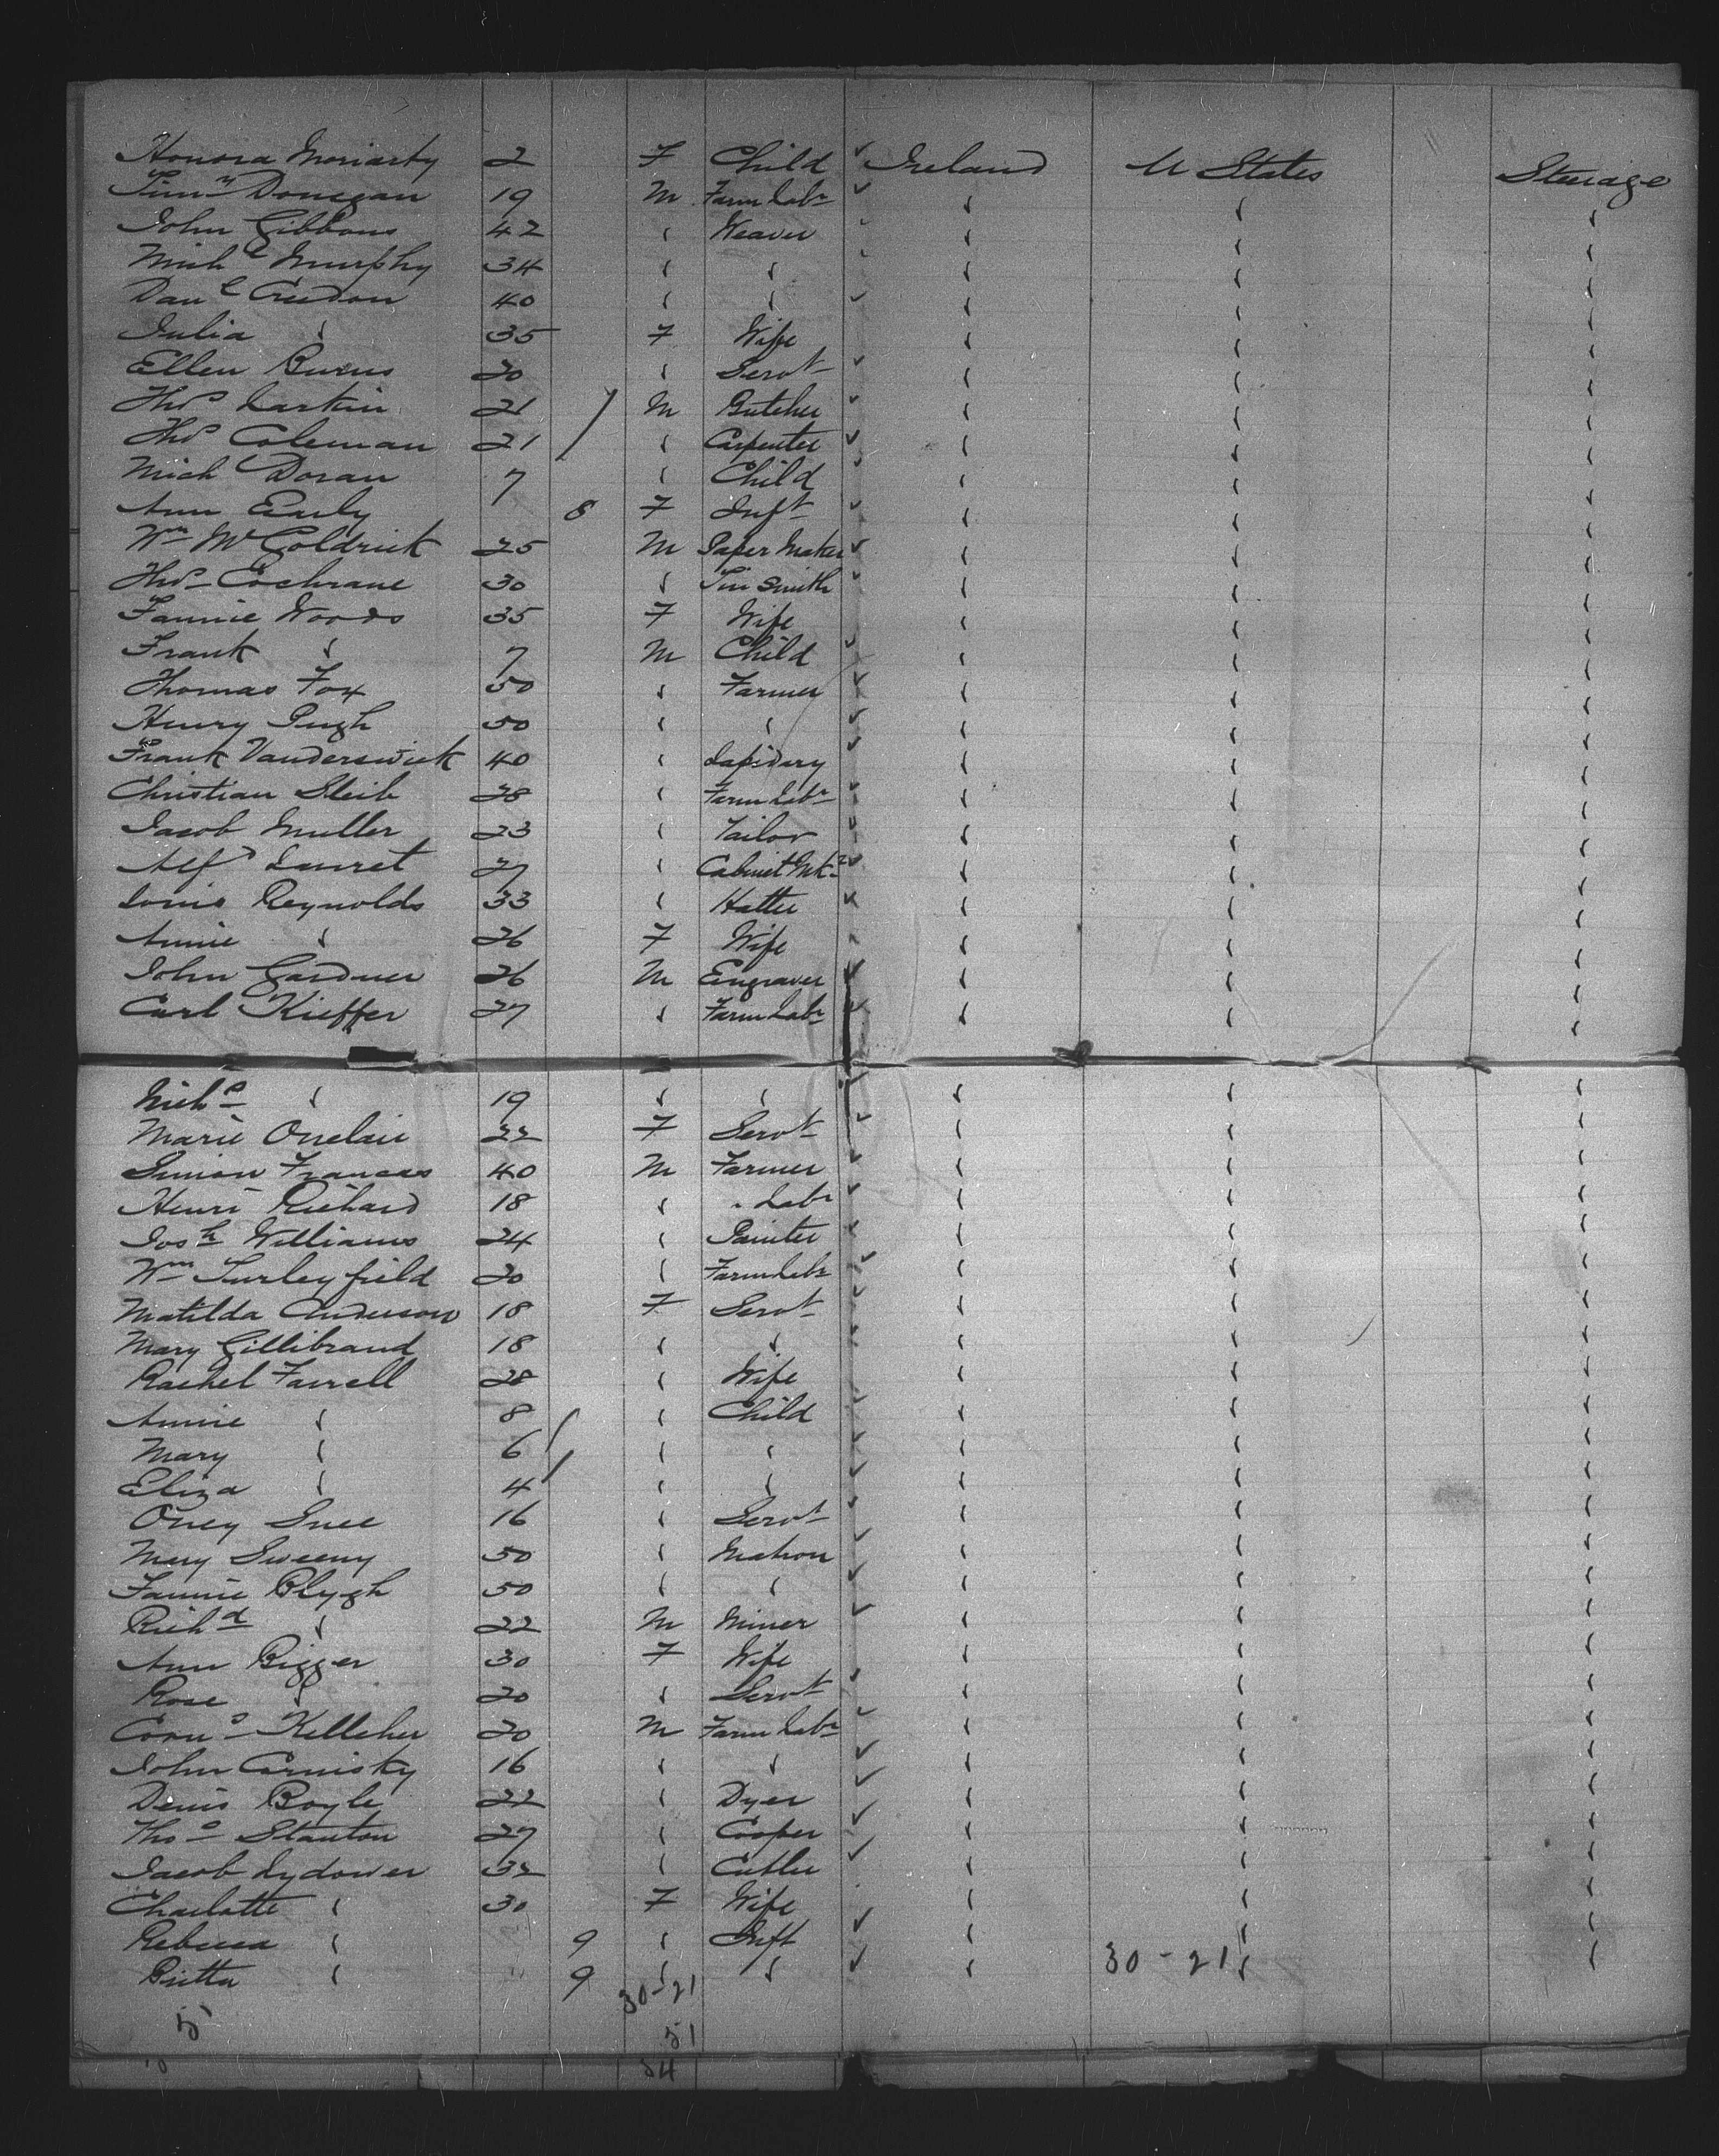 Honora Moriarty 2 F Child ✓ Ireland U States Steerage
Timy Donegan 19 M Farm Labr ✓ " " "
John Gibbons 42 " Weaver " " "
Michl Murphy 34 " " " " "
Danl Creedon 40 " " ✓ " " "
Julia " 35 F Wife " " "
Ellen Burns 20 " Servt ✓ " " "
Thos Larkin 21 M Butcher ✓ " " "
Thos Coleman 21 " Carpenter ✓ " " "
Mich Doran 7 " Child ✓ " " "
Ann Early 8 F Inft ✓ " " "
Wm McGoldrick 25 M Paper Maker ✓ " " "
Thos Cochrane 30 " Tin Smith ✓ " " "
Fannie Woods 35 F Wife " " "
Frank " 7 M Child ✓ " " "
Thomas Fox 50 " Farmer ✓ " " "
Henry Pugh 50 " " ✓ " " "
Frank Vanderswick 40 " Lapidary ✓ " " "
Christian Sleib 28 " Farm Labr ✓ " " "
Jacob Muller 23 " Tailor ✓ " " "
Alfd Lauret 27 " Cabinet Mkr ✓ " " "
Louis Reynolds 33 " Hatter ✓ " " "
Annie " 26 F Wife " " "
John Gardner 26 M Engraver ✓ " " "
Carl Kieffer 27 " Farm Labr ✓ " " "
Nichs " 19 " " ✓ " " "
Marie 22 F Servt ✓ " " "
Simon Francas 40 M Farmer ✓ " " "
Henri Richard 18 " " Labr ✓ " " "
Josh Williams 24 " Painter ✓ " " "
Wm Turleyfield 20 " Farm Labr ✓ " " "
Matilda Anderson 18 F Servt ✓ " " "
Mary Gillibrand 18 " " ✓ " " "
Rachel Farrell 28 " Wife " " "
Annie " 8 " Child ✓ " " "
Mary " 6 " " ✓ " " "
Eliza " 4 " " ✓ " " "
Oney Snee 16 " Servt ✓ " " "
Mary Sweeny 50 " Matron ✓ " " "
Fannie Blygh 50 " " ✓ " " "
Richd " 22 M Miner ✓ " " "
Ann Bigger 30 F Wife " " "
Rose " 20 " Servt ✓ " " "
Corns Kelleher 20 M Farm Labr ✓ " " "
John Cornisky 16 " " ✓ " " "
Denis Boyle 22 " Dyer ✓ " " "
Thos Stanton 27 " Cooper ✓ " " "
Jacob Lydower 32 " Cutler ✓ " " "
Charlotte " 30 F Wife " " "
Rebecca " 9 " Inft ✓ " " "
Britta " 9 " " ✓ " 30-21 " "
30-21
51
54